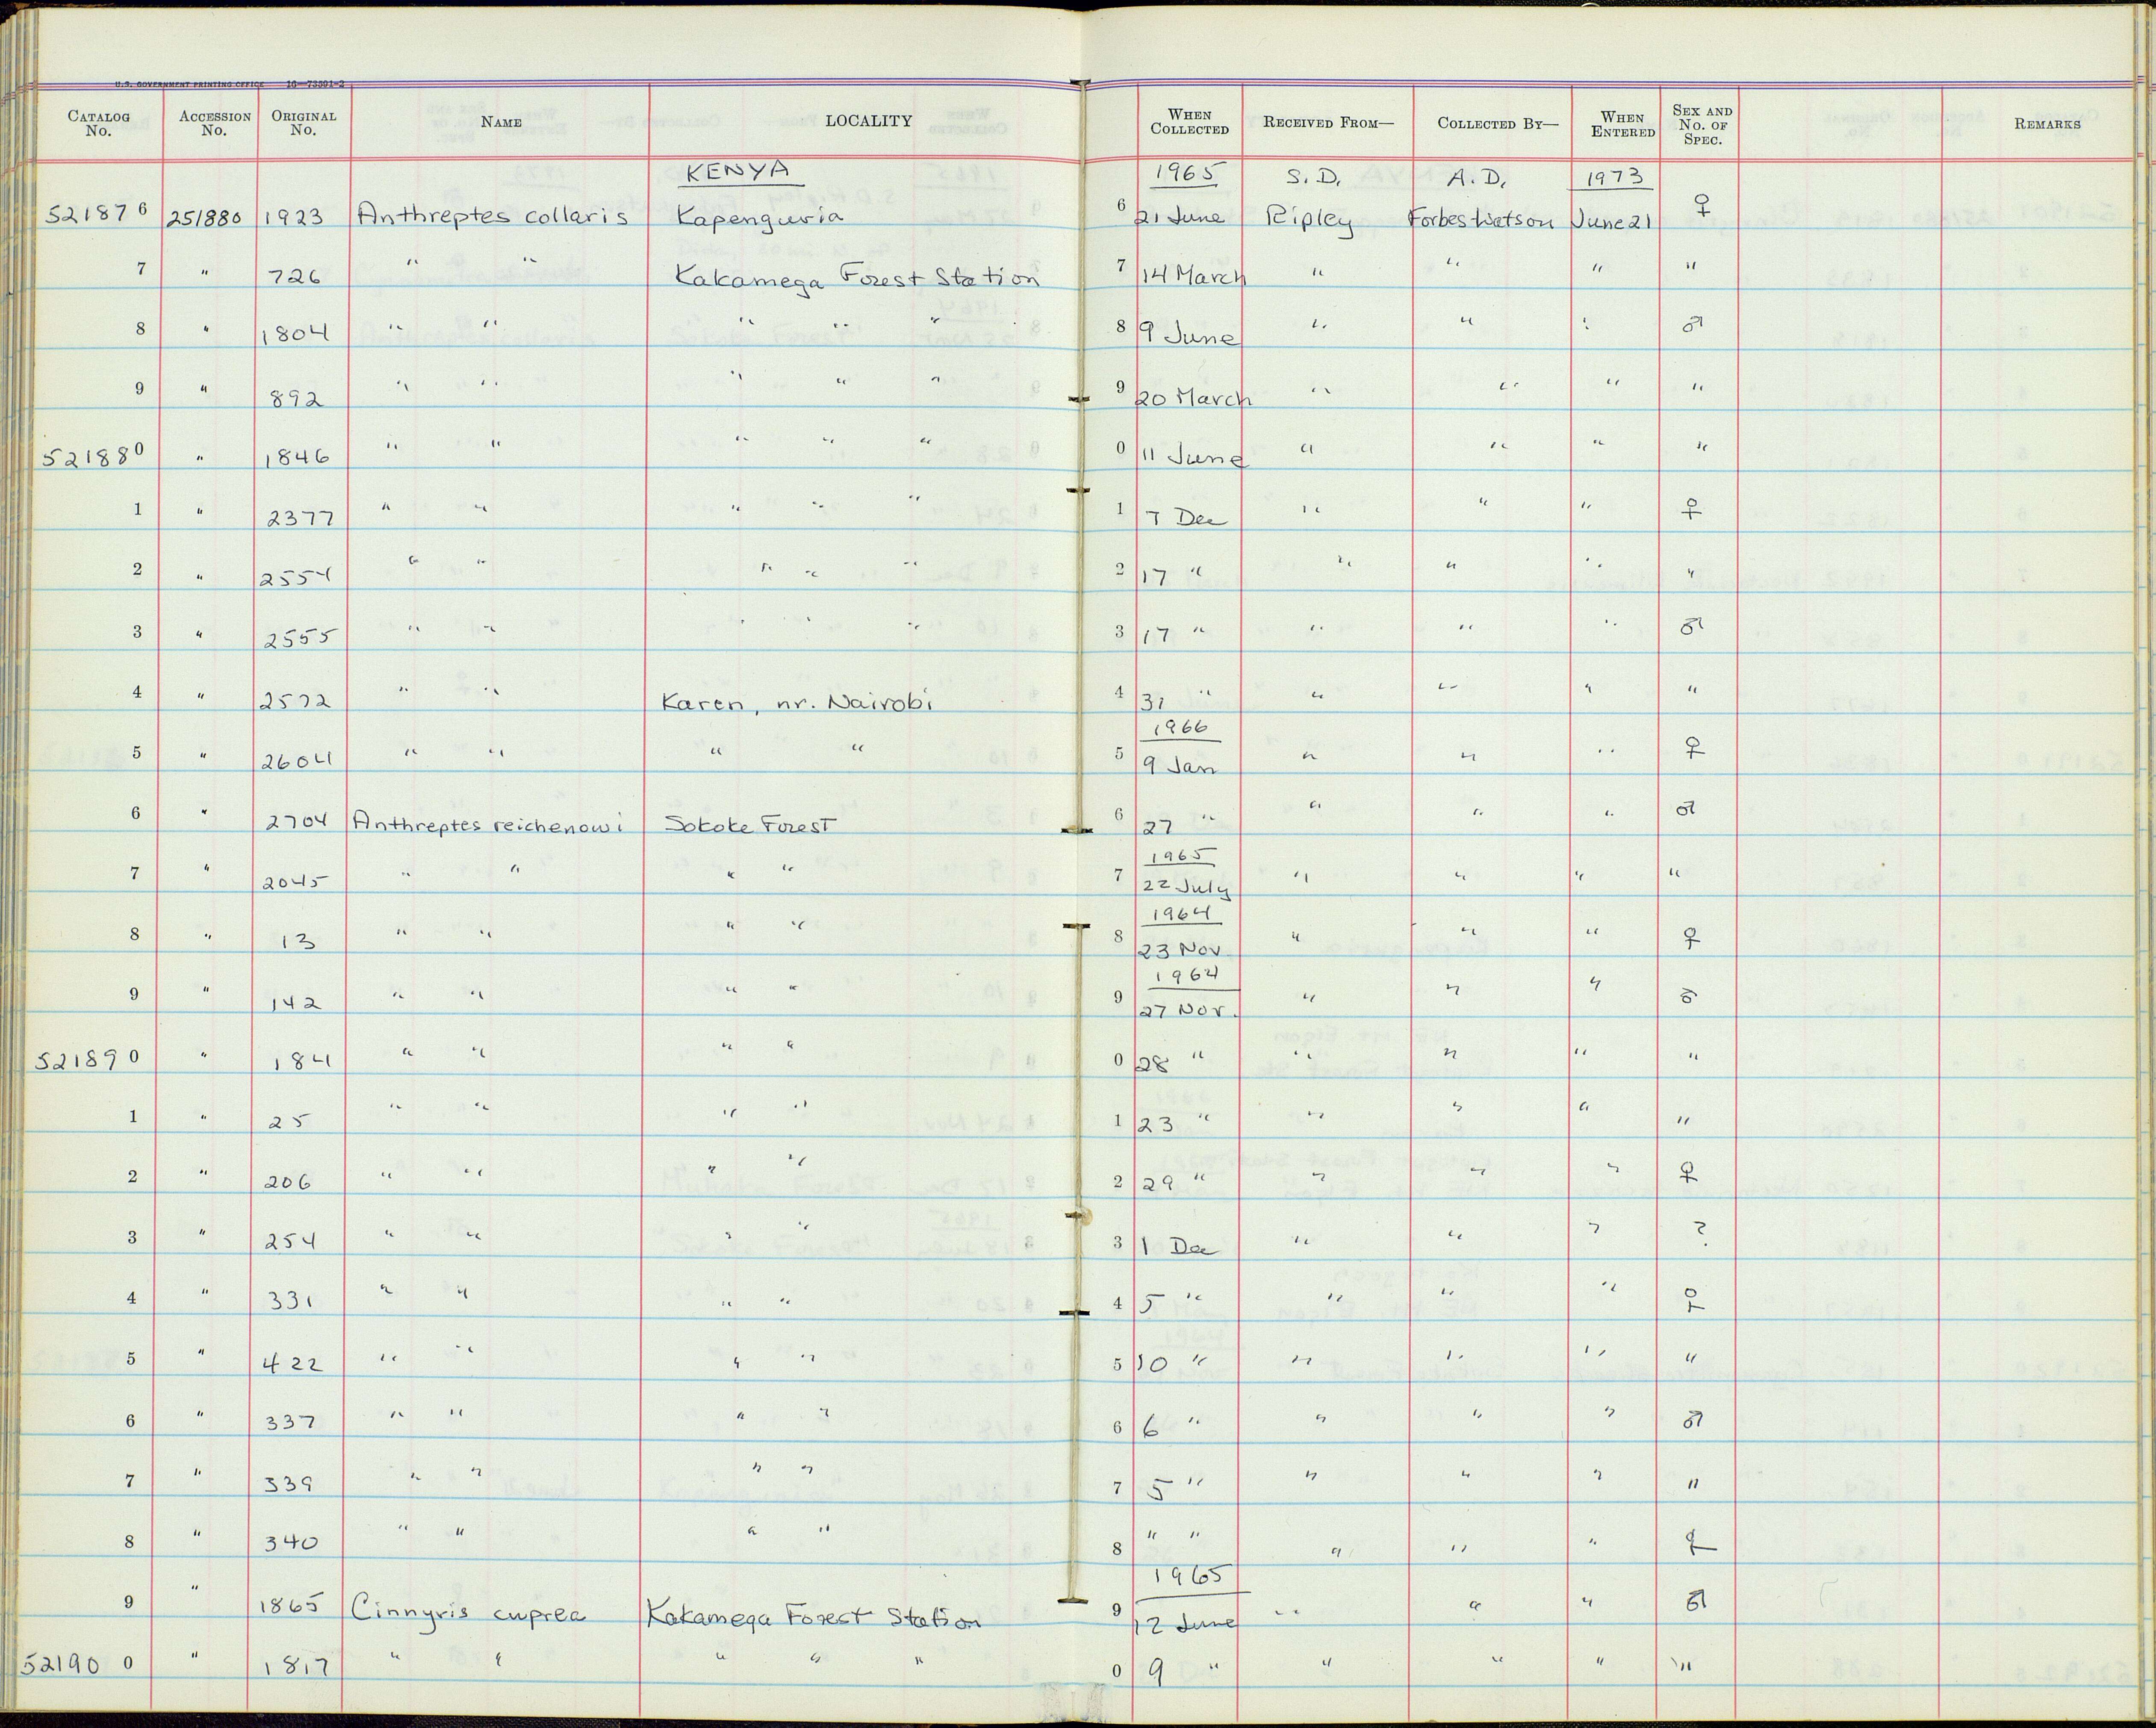 U.S. GOVERNMENT PRINTING OFFICE 16—73801-2
CATALOG No. ACCESSION No. ORIGINAL No. NAME LOCALITY WHEN COLLECTED RECEIVED FROM— COLLECTED BY— WHEN ENTERED SEX AND No. OF SPEC. REMARKS
KENYA 1965 S.D. A.D. 1973
521876 251880 1923 Anthreptes collaris Kapenguria 6 21 June Ripley Forbes Watson June 21 ♀
7 " 726 " " Kakamega Forest Station 7 14 March " " " "
8 " 1804 " " " " " 8 9 June " " " ♂
9 " 892 " " " " " 9 20 March " " " "
521880 " 1846 " " " " " 0 11 June " " " "
1 " 2377 " " " " " 1 7 Dec " " " ♀
2 " 2554 " " " " " 2 17 " " " " "
3 " 2555 " " " " " 3 17 " " " " ♂
4 " 2572 " " Karen, nr. Nairobi 4 31 " " " " "
1966
5 " 2604 " " " " 5 9 Jan " " " ♀
6 " 2704 Anthreptes reichenowi Sokoke Forest 6 27 " " " " ♂
1965
7 " 2045 " " " " 7 22 July " " " "
1964
8 " 13 " " " " 8 23 Nov. " " " ♀
1964
9 " 142 " " " " 9 27 Nov. " " " ♂
521890 " 184 " " " " 0 28 " " " " "
1 " 25 " " " " 1 23 " " " " "
2 " 206 " " " " 2 29 " " " " ♀
3 " 254 " " " " 3 1 Dec " " " ?
4 " 331 " " " " 4 5 " " " " ♀
5 " 422 " " " " 5 10 " " " " "
6 " 337 " " " " 6 6 " " " " ♂
7 " 339 " " " " 7 5 " " " " "
8 " 340 " " " " 8 " " " " " ♀
1965
9 " 1865 Cinnyris cuprea Kakamega Forest Station 9 12 June " " " ♂
521900 " 1817 " " " " " 0 9 " " " " "